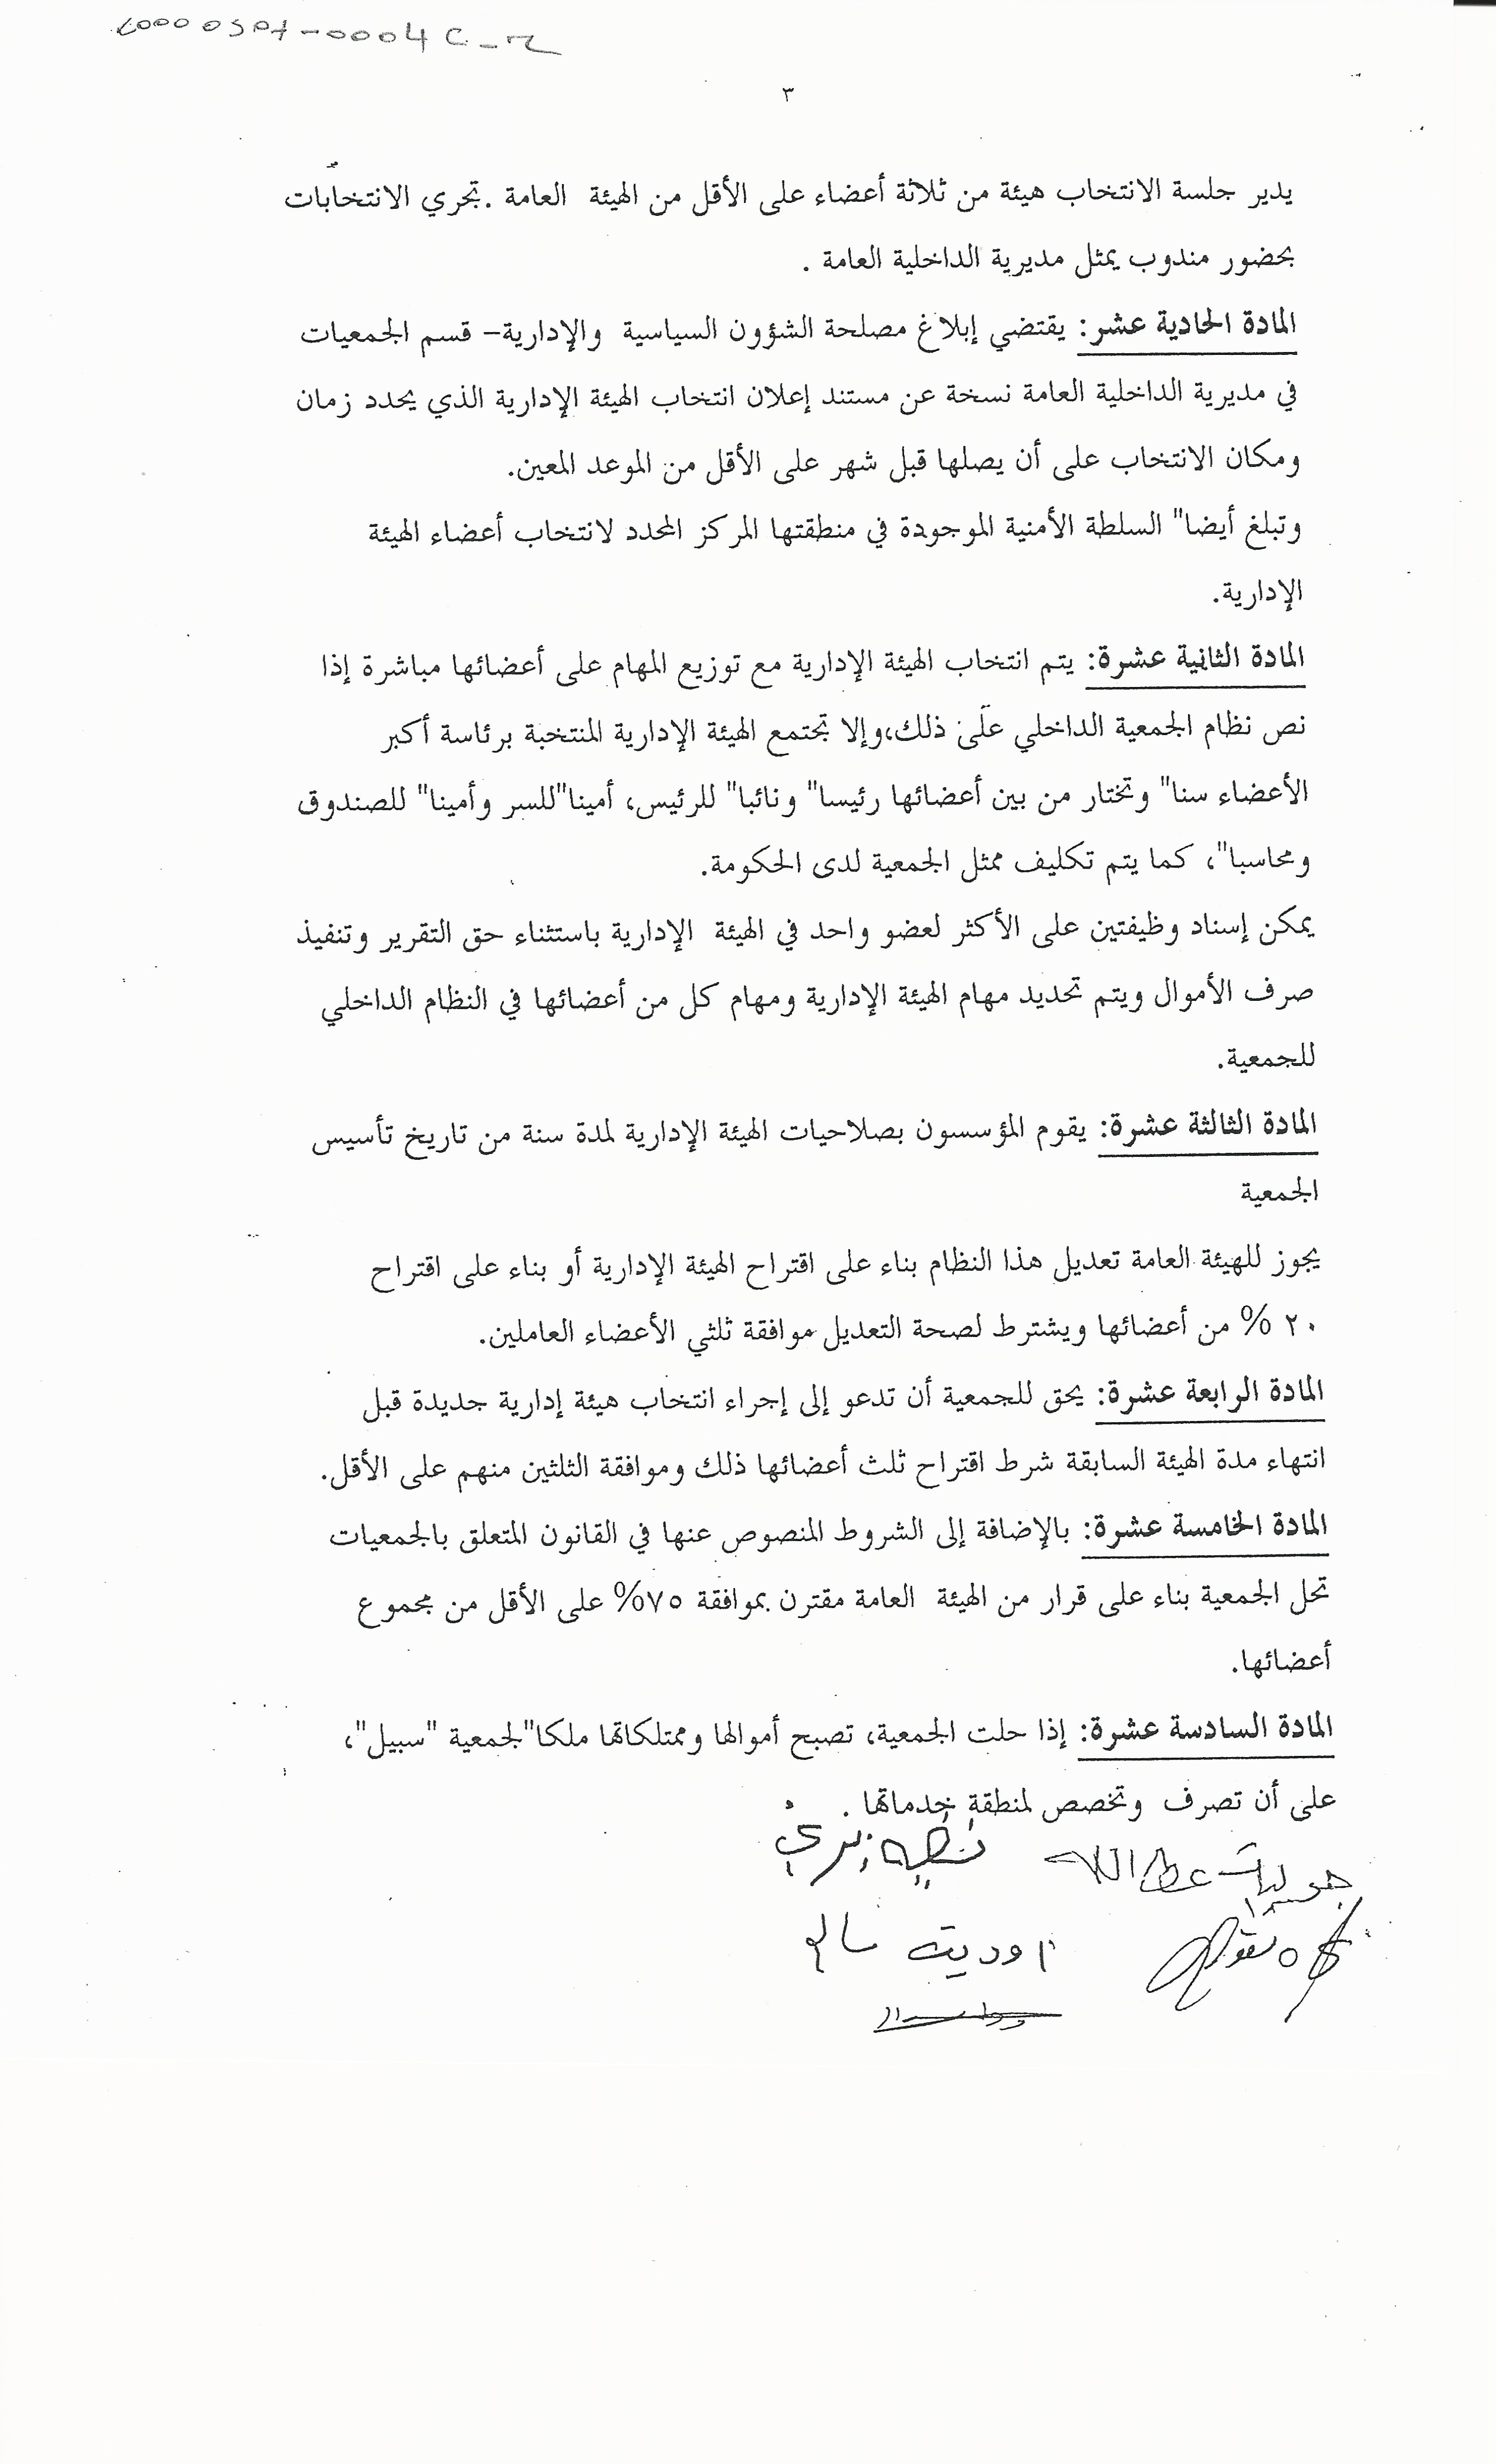 ٣
يدير جلسة الانتخاب هيئة من ثلاثة أعضاء على الأقل من الهيئة العامة .تجري الانتخابات
بحضور مندوب يمثل مديرية الداخلية العامة .
المادة الحادية عشر: يقتضي إبلاغ مصلحة الشؤون السياسية والإدارية– قسم الجمعيات
في مديرية الداخلية العامة نسخة عن مستند إعلان انتخاب الهيئة الإدارية الذي يحدد زمان
ومكان الانتخاب على أن يصلها قبل شهر على الأقل من الموعد المعين.
وتبلغ أيضا" السلطة الأمنية الموجودة في منطقتها المركز المحدد لانتخاب أعضاء الهيئة
الإدارية.
المادة الثانية عشرة: يتم انتخاب الهيئة الإدارية مع توزيع المهام على أعضائها مباشرة إذا
نص نظام الجمعية الداخلي على ذلك،وإلا تجتمع الهيئة الإدارية المنتخبة برئاسة أكبر
الأعضاء سنا" وتختار من بين أعضائها رئيسا" ونائبا" للرئيس، أمينا"للسر وأمينا" للصندوق
ومحاسبا"، كما يتم تكليف ممثل الجمعية لدى الحكومة.
يمكن إسناد وظيفتين على الأكثر لعضو واحد في الهيئة الإدارية باستثناء حق التقرير وتنفيذ
صرف الأموال ويتم تحديد مهام الهيئة الإدارية ومهام كل من أعضائها في النظام الداخلي
للجمعية.
المادة الثالثة عشرة: يقوم المؤسسون بصلاحيات الهيئة الإدارية لمدة سنة من تاريخ تأسيس
الجمعية
يجوز للهيئة العامة تعديل هذا النظام بناء على اقتراح الهيئة الإدارية أو بناء على اقتراح
٢٠ % من أعضائها ويشترط لصحة التعديل موافقة ثلثي الأعضاء العاملين.
المادة الرابعة عشرة: يحق للجمعية أن تدعو إلى إجراء انتخاب هيئة إدارية جديدة قبل
انتهاء مدة الهيئة السابقة شرط اقتراح ثلث أعضائها ذلك وموافقة الثلثين منهم على الأقل.
المادة الخامسة عشرة: بالإضافة إلى الشروط المنصوص عنها في القانون المتعلق بالجمعيات
تحل الجمعية بناء على قرار من الهيئة العامة مقترن بموافقة ٧٥% على الأقل من مجموع
أعضائها.
المادة السادسة عشرة: إذا حلت الجمعية، تصبح أموالها وممتلكاتها ملكا"لجمعية "سبيل"،
على أن تصرف وتخصص لمنطقة خدماتها .
عطاالله
اوديت سالم